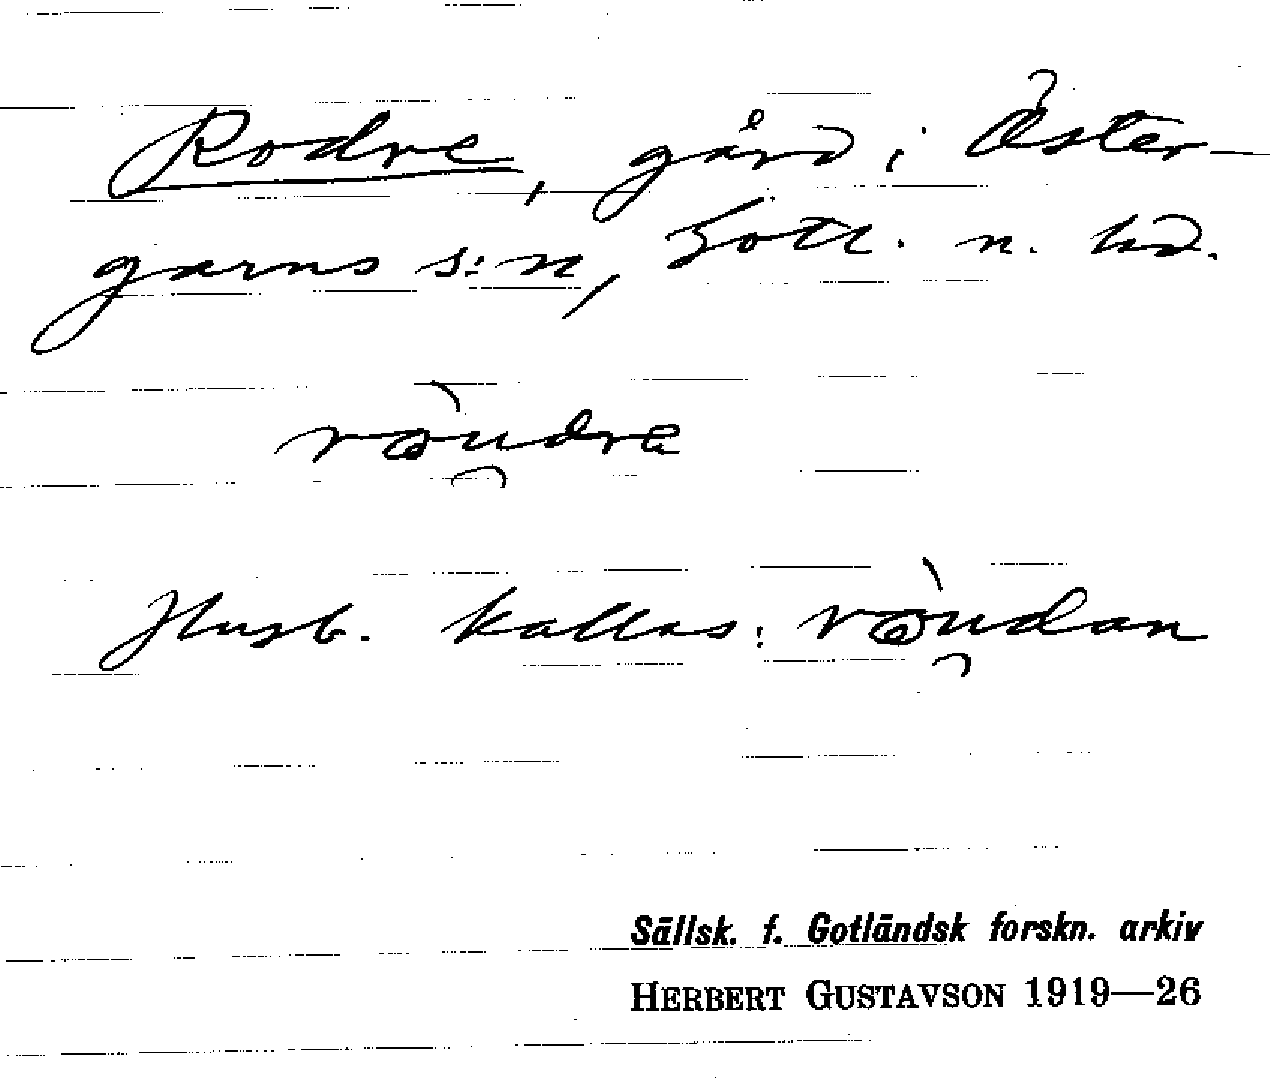 Rodre, gård i Öster-
garns s:n, Gotl. n. hd.
ræ̀u̯dre
Husb. kallas: ræ̀u̯dan
Sällsk. f. Gotländsk forskn. arkiv
HERBERT GUSTAVSON 1919—26